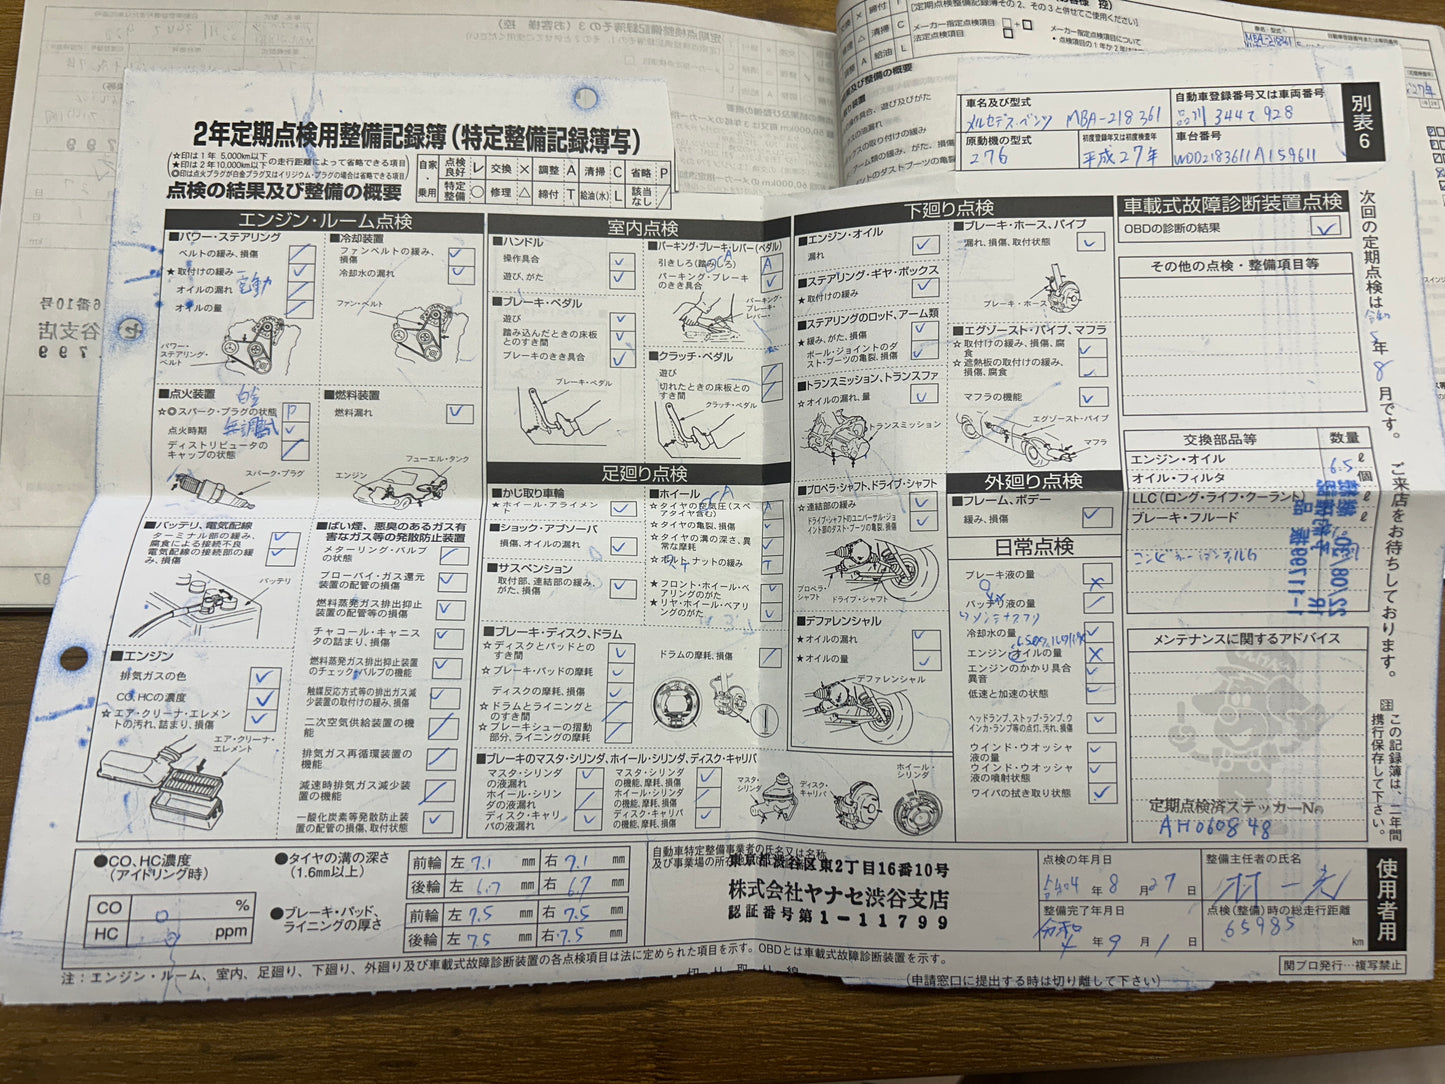 2年定期点検用整備記録簿(特定整備記録簿写)
☆印は1年 5,000km以下
★印は2年10,000km以下
の走行距離によって省略できる項目
◎印は点火プラグが白金プラグ又はイリジウム・プラグの場合は省略できる項目
点検の結果及び整備の概要
自家 点検良好 レ 交換 × 調整 A 清掃 C 省略 P
乗用 特定整備 ○ 修理 △ 締付 T 給油(水) L 該当なし /
車名及び型式
メルセデス・ベンツ MBA-218361
自動車登録番号又は車両番号
品川 344 928
原動機の型式
276
初度登録年又は初度検査年
平成27年
車台番号
WDD2183611A159611
別表6
エンジン・ルーム点検
■パワー・ステアリング
ベルトの緩み、損傷
★取付けの緩み
電動
オイルの漏れ
オイルの量
パワー・ステアリング・ベルト
■冷却装置
ファンベルトの緩み、損傷
冷却水の漏れ
ファン・ベルト
■点火装置
白金
☆◎スパーク・プラグの状態 P
点火時期 無調整式
ディストリビュータのキャップの状態
スパーク・プラグ
■燃料装置
燃料漏れ
フューエル・タンク
エンジン
■バッテリ、電気配線
ターミナル部の緩み、腐食による接続不良
電気配線の接続部の緩み、損傷
バッテリ
■ばい煙、悪臭のあるガス有害なガス等の発散防止装置
メターリング・バルブの状態
ブローバイ・ガス還元装置の配管の損傷
燃料蒸発ガス排出抑止装置の配管等の損傷
チャコール・キャニスタの詰まり、損傷
燃料蒸発ガス排出抑止装置のチェック・バルブの機能
触媒反応方式等の排出ガス減少装置の取付けの緩み、損傷
二次空気供給装置の機能
排気ガス再循環装置の機能
減速時排気ガス減少装置の機能
一酸化炭素等発散防止装置の配管の損傷、取付状態
■エンジン
排気ガスの色
CO、HCの濃度
☆エア・クリーナ・エレメントの汚れ、詰まり、損傷
エア・クリーナ・エレメント
室内点検
■ハンドル
操作具合
遊び、がた
■ブレーキ・ペダル
遊び
踏み込んだときの床板とのすき間
ブレーキのきき具合
ブレーキ・ペダル
■パーキング・ブレーキ・レバー(ペダル)
引きしろ(踏みしろ) A
パーキング・ブレーキのきき具合
パーキング・ブレーキ・レバー
■クラッチ・ペダル
遊び
切れたときの床板とのすき間
クラッチ・ペダル
足廻り点検
■かじ取り車輪
★ホイール・アライメント
■ショック・アブソーバ
損傷、オイルの漏れ
■サスペンション
取付部、連結部の緩み、がた、損傷
■ホイール
☆タイヤの空気圧(スペアタイヤ含む) A
☆タイヤの亀裂、損傷
☆タイヤの溝の深さ、異常な摩耗
☆ボルト、ナットの緩み T
★フロント・ホイール・ベアリングのがた
★リヤ・ホイール・ベアリングのがた
■ブレーキ・ディスク、ドラム
☆ディスクとパッドとのすき間
☆ブレーキ・パッドの摩耗
ディスクの摩耗、損傷
☆ドラムとライニングとのすき間
☆ブレーキシューの摺動部分、ライニングの摩耗
ドラムの摩耗、損傷
■ブレーキのマスタ・シリンダ、ホイール・シリンダ、ディスク・キャリパ
マスタ・シリンダの液漏れ
ホイール・シリンダの液漏れ
ディスク・キャリパの液漏れ
マスタ・シリンダの機能、摩耗、損傷
ホイール・シリンダの機能、摩耗、損傷
ディスク・キャリパの機能、摩耗、損傷
マスタ・シリンダ
ディスク・キャリパ
ホイール・シリンダ
下廻り点検
■エンジン・オイル
漏れ
■ステアリング・ギヤ・ボックス
★取付けの緩み
■ステアリングのロッド、アーム類
★緩み、がた、損傷
ボール・ジョイントのダスト・ブーツの亀裂、損傷
■トランスミッション、トランスファ
☆オイルの漏れ、量
トランスミッション
■プロペラ・シャフト、ドライブ・シャフト
★連結部の緩み
ドライブ・シャフトのユニバーサル・ジョイント部のダスト・ブーツの亀裂、損傷
プロペラ・シャフト
ドライブ・シャフト
■デファレンシャル
★オイルの漏れ
★オイルの量
デファレンシャル
■ブレーキ・ホース、パイプ
漏れ、損傷、取付状態
ブレーキ・ホース
■エグゾースト・パイプ、マフラ
☆取付けの緩み、損傷、腐食
☆遮熱板の取付けの緩み、損傷、腐食
マフラの機能
エグゾースト・パイプ
マフラ
外廻り点検
■フレーム、ボデー
緩み、損傷
日常点検
ブレーキ液の量
バッテリ液の量
メンテナスフリ
冷却水の量
エンジン・オイルの量
エンジンのかかり具合
異音
低速と加速の状態
ヘッドランプ、ストップ・ランプ、ウインカ・ランプ等の点灯、汚れ、損傷
ウインド・ウオッシャ液の量
ウインド・ウオッシャ液の噴射状態
ワイパの拭き取り状態
車載式故障診断装置点検
OBDの診断の結果
その他の点検・整備項目等
交換部品等 数量
エンジン・オイル 6.5 ℓ
オイル・フィルタ 個
LLC(ロング・ライフ・クーラント) ℓ
ブレーキ・フルード ℓ
メンテナンスに関するアドバイス
定期点検済ステッカーNo
AH060848
次回の定期点検は令和5年8月です。 ご来店をお待ちしております。
注 この記録簿は、二年間携行保存して下さい。
●CO、HC濃度
(アイドリング時)
CO %
HC ppm
●タイヤの溝の深さ
(1.6mm以上)
前輪 左 7.1 mm 右 7.1 mm
後輪 左 6.7 mm 右 6.7 mm
●ブレーキ・パッド、ライニングの厚さ
前輪 左 7.5 mm 右 7.5 mm
後輪 左 7.5 mm 右 7.5 mm
自動車特定整備事業者の氏名又は名称及び事業場の所在地
東京都渋谷区東2丁目16番10号
株式会社ヤナセ渋谷支店
認証番号第1-11799
点検の年月日
令和04年8月27日
整備完了年月日
令和4年9月1日
整備主任者の氏名
点検(整備)時の総走行距離
65985 km
使用者用
注:エンジン・ルーム、室内、足廻り、下廻り、外廻り及び車載式故障診断装置の各点検項目は法に定められた項目を示す。OBDとは車載式故障診断装置を示す。
切り取り線
(申請窓口に提出する時は切り離して下さい)
関プロ発行…複写禁止